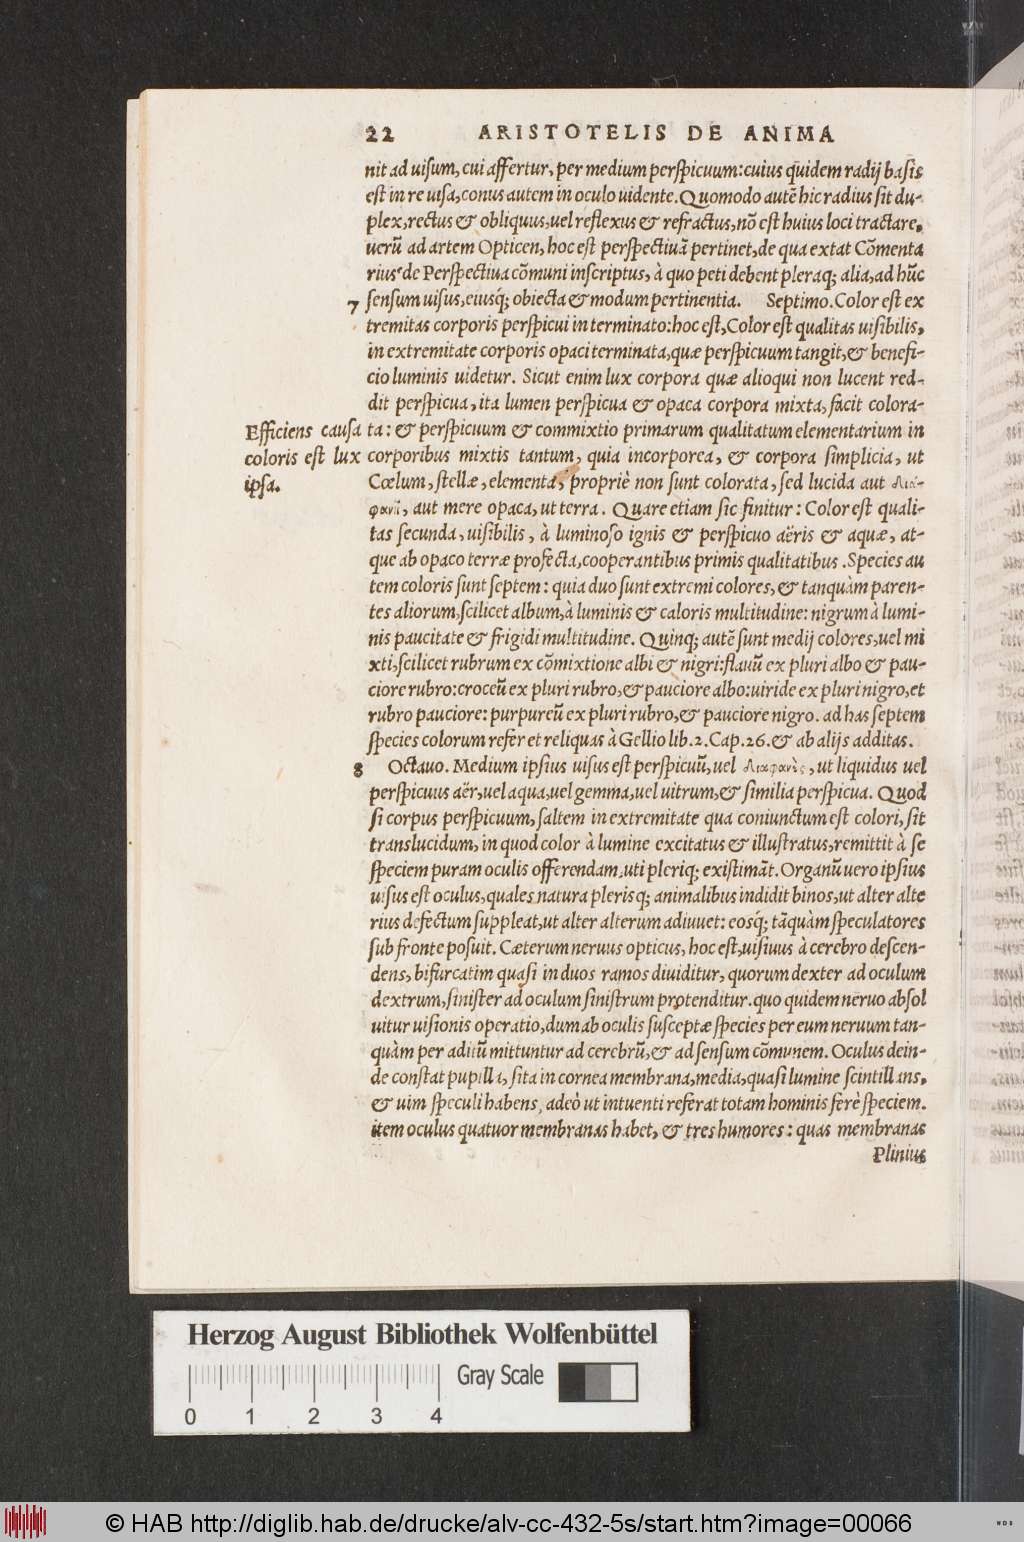 22 ARISTOTELIS DE ANIMA
nit ad uisum, cui affertur, per medium perspicuum: cuius quidem radij basis
est in re uisa, conus autem in oculo uidente. Quomodo autē hic radius sit du-
plex, rectus & obliquus, uel reflexus & refractus, nō est huius loci tractare,
uerū ad artem Opticen, hoc est perspectiuā pertinet, de qua extat Cōmenta
rius de Perspectiua cōmuni inscriptus, à quo peti debent pleraq; alia, ad hūc
7 sensum uisus, eiusq́; obiecta & modum pertinentia. Septimo. Color est ex
tremitas corporis perspicui in terminato: hoc est, Color est qualitas uisibilis,
in extremitate corporis opaci terminata, quæ perspicuum tangit, & benefi-
cio luminis uidetur. Sicut enim lux corpora quæ alioqui non lucent red-
dit perspicua, ita lumen perspicua & opaca corpora mixta, facit colora-
Efficiens causa
coloris est lux
ipsa.
ta: & perspicuum & commixtio primarum qualitatum elementarium in
corporibus mixtis tantum, quia incorporea, & corpora simplicia, ut
Cœlum, stellæ, elementa, propriè non sunt colorata, sed lucida aut δια-
φανῆ, aut mere opaca, ut terra. Quare etiam sic finitur: Color est quali-
tas secunda, uisibilis, à luminoso ignis & perspicuo aëris & aquæ, at-
que ab opaco terræ profecta, cooperantibus primis qualitatibus. Species au
tem coloris sunt septem: quia duo sunt extremi colores, & tanquàm paren-
tes aliorum, scilicet album, à luminis & caloris multitudine: nigrum à lumi-
nis paucitate & frigidi multitudine. Quinq; autē sunt medij colores, uel mi
xti, scilicet rubrum ex cōmixtione albi & nigri: flauū ex pluri albo & pau-
ciore rubro: croceū ex pluri rubro, & pauciore albo: uiride ex pluri nigro, et
rubro pauciore: purpureū ex pluri rubro, & pauciore nigro. ad has septem
species colorum refer et reliquas à Gellio lib. 2. Cap. 26. & ab alijs additas.
8 Octauo. Medium ipsius uisus est perspicuū, uel διαφανὲς, ut liquidus uel
perspicuus aër, uel aqua, uel gemma, uel uitrum, & similia perspicua. Quod
si corpus perspicuum, saltem in extremitate qua coniunctum est colori, sit
translucidum, in quod color à lumine excitatus & illustratus, remittit à se
speciem puram oculis offerendam, uti pleriq; existimāt. Organū uero ipsius
uisus est oculus, quales natura plerisq; animalibus indidit binos, ut alter alte
rius defectum suppleat, ut alter alterum adiuuet: eosq́; tāquàm speculatores
sub fronte posuit. Cæterum neruus opticus, hoc est, uisiuus à cerebro descen-
dens, bifurcatim quasi in duos ramos diuiditur, quorum dexter ad oculum
dextrum, sinister ad oculum sinistrum protenditur. quo quidem neruo absol
uitur uisionis operatio, dum ab oculis susceptæ species per eum neruum tan-
quàm per aditū mittuntur ad cerebrū, & ad sensum cōmunem. Oculus dein-
de constat pupilla, sita in cornea membrana, media, quasi lumine scintillans,
& uim speculi habens, adeò ut intuenti referat totam hominis ferè speciem.
item oculus quatuor membranas habet, & tres humores: quas membranas
Plinius
Herzog August Bibliothek Wolfenbüttel
Gray Scale
0 1 2 3 4
© HAB http://diglib.hab.de/drucke/alv-cc-432-5s/start.htm?image=00066